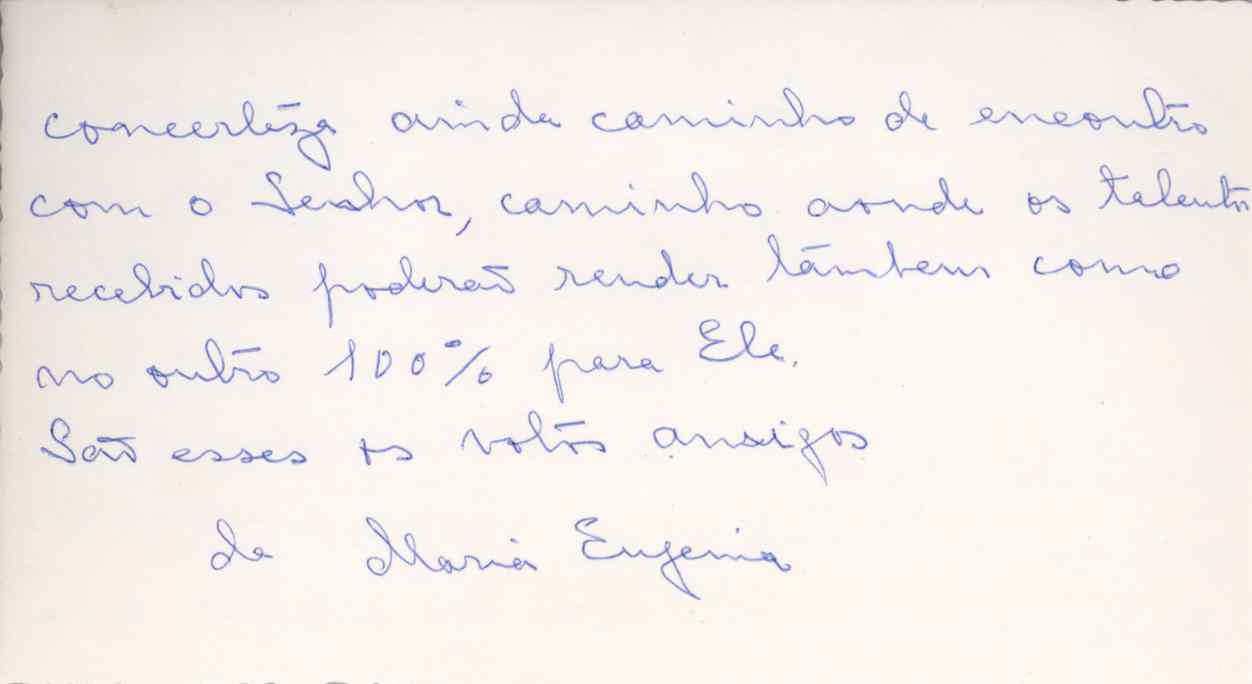 concerteza ainda caminho de encontro
com o Senhor, caminho aonde os talentos
recebidos poderão render também como
no outro 100% para Ele.
São esses os votos amigos
da Maria Eugenia